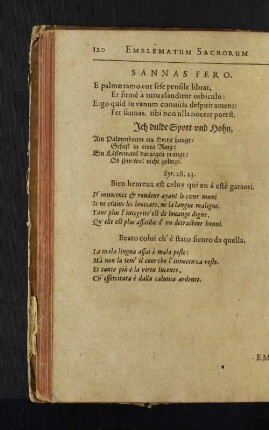 120 EMBLEMATUM SACRORUM
SANNAS FERO.
E palmæ ramo cor sese pensile librat,
Et firmè a tuto clauditur orbiculo:
Ergo quid in vanum convitia despuit amens?
Fer sannas, tibi non illa nocere potest.
Ich dulde Spott vnd Hohn.
Am Palmenbaum ein Hertz hangt:
Gefast in einen Ring:
Ein Lästermaul
Ob ihm wol nicht gelingt.
Syr. 28. 23.
Bien heureux est celuy qui en a esté garanti.
D'innocence & rondeur ayant le cœur muni
Je ne crains les broccars, ne la langue maligne.
Tant plus l'integrité est de louange digne,
Qu'elle est plus assaillie d'un detracteur honni.
Beato colui ch' è stato sicuro da quella.
La mala lingua assai è mala peste:
Mà non la tem' il cuor che l'innocenza veste.
Et tanto più è la virtu lucente,
Ch' essercitata è dalla calunia ardente.
EM